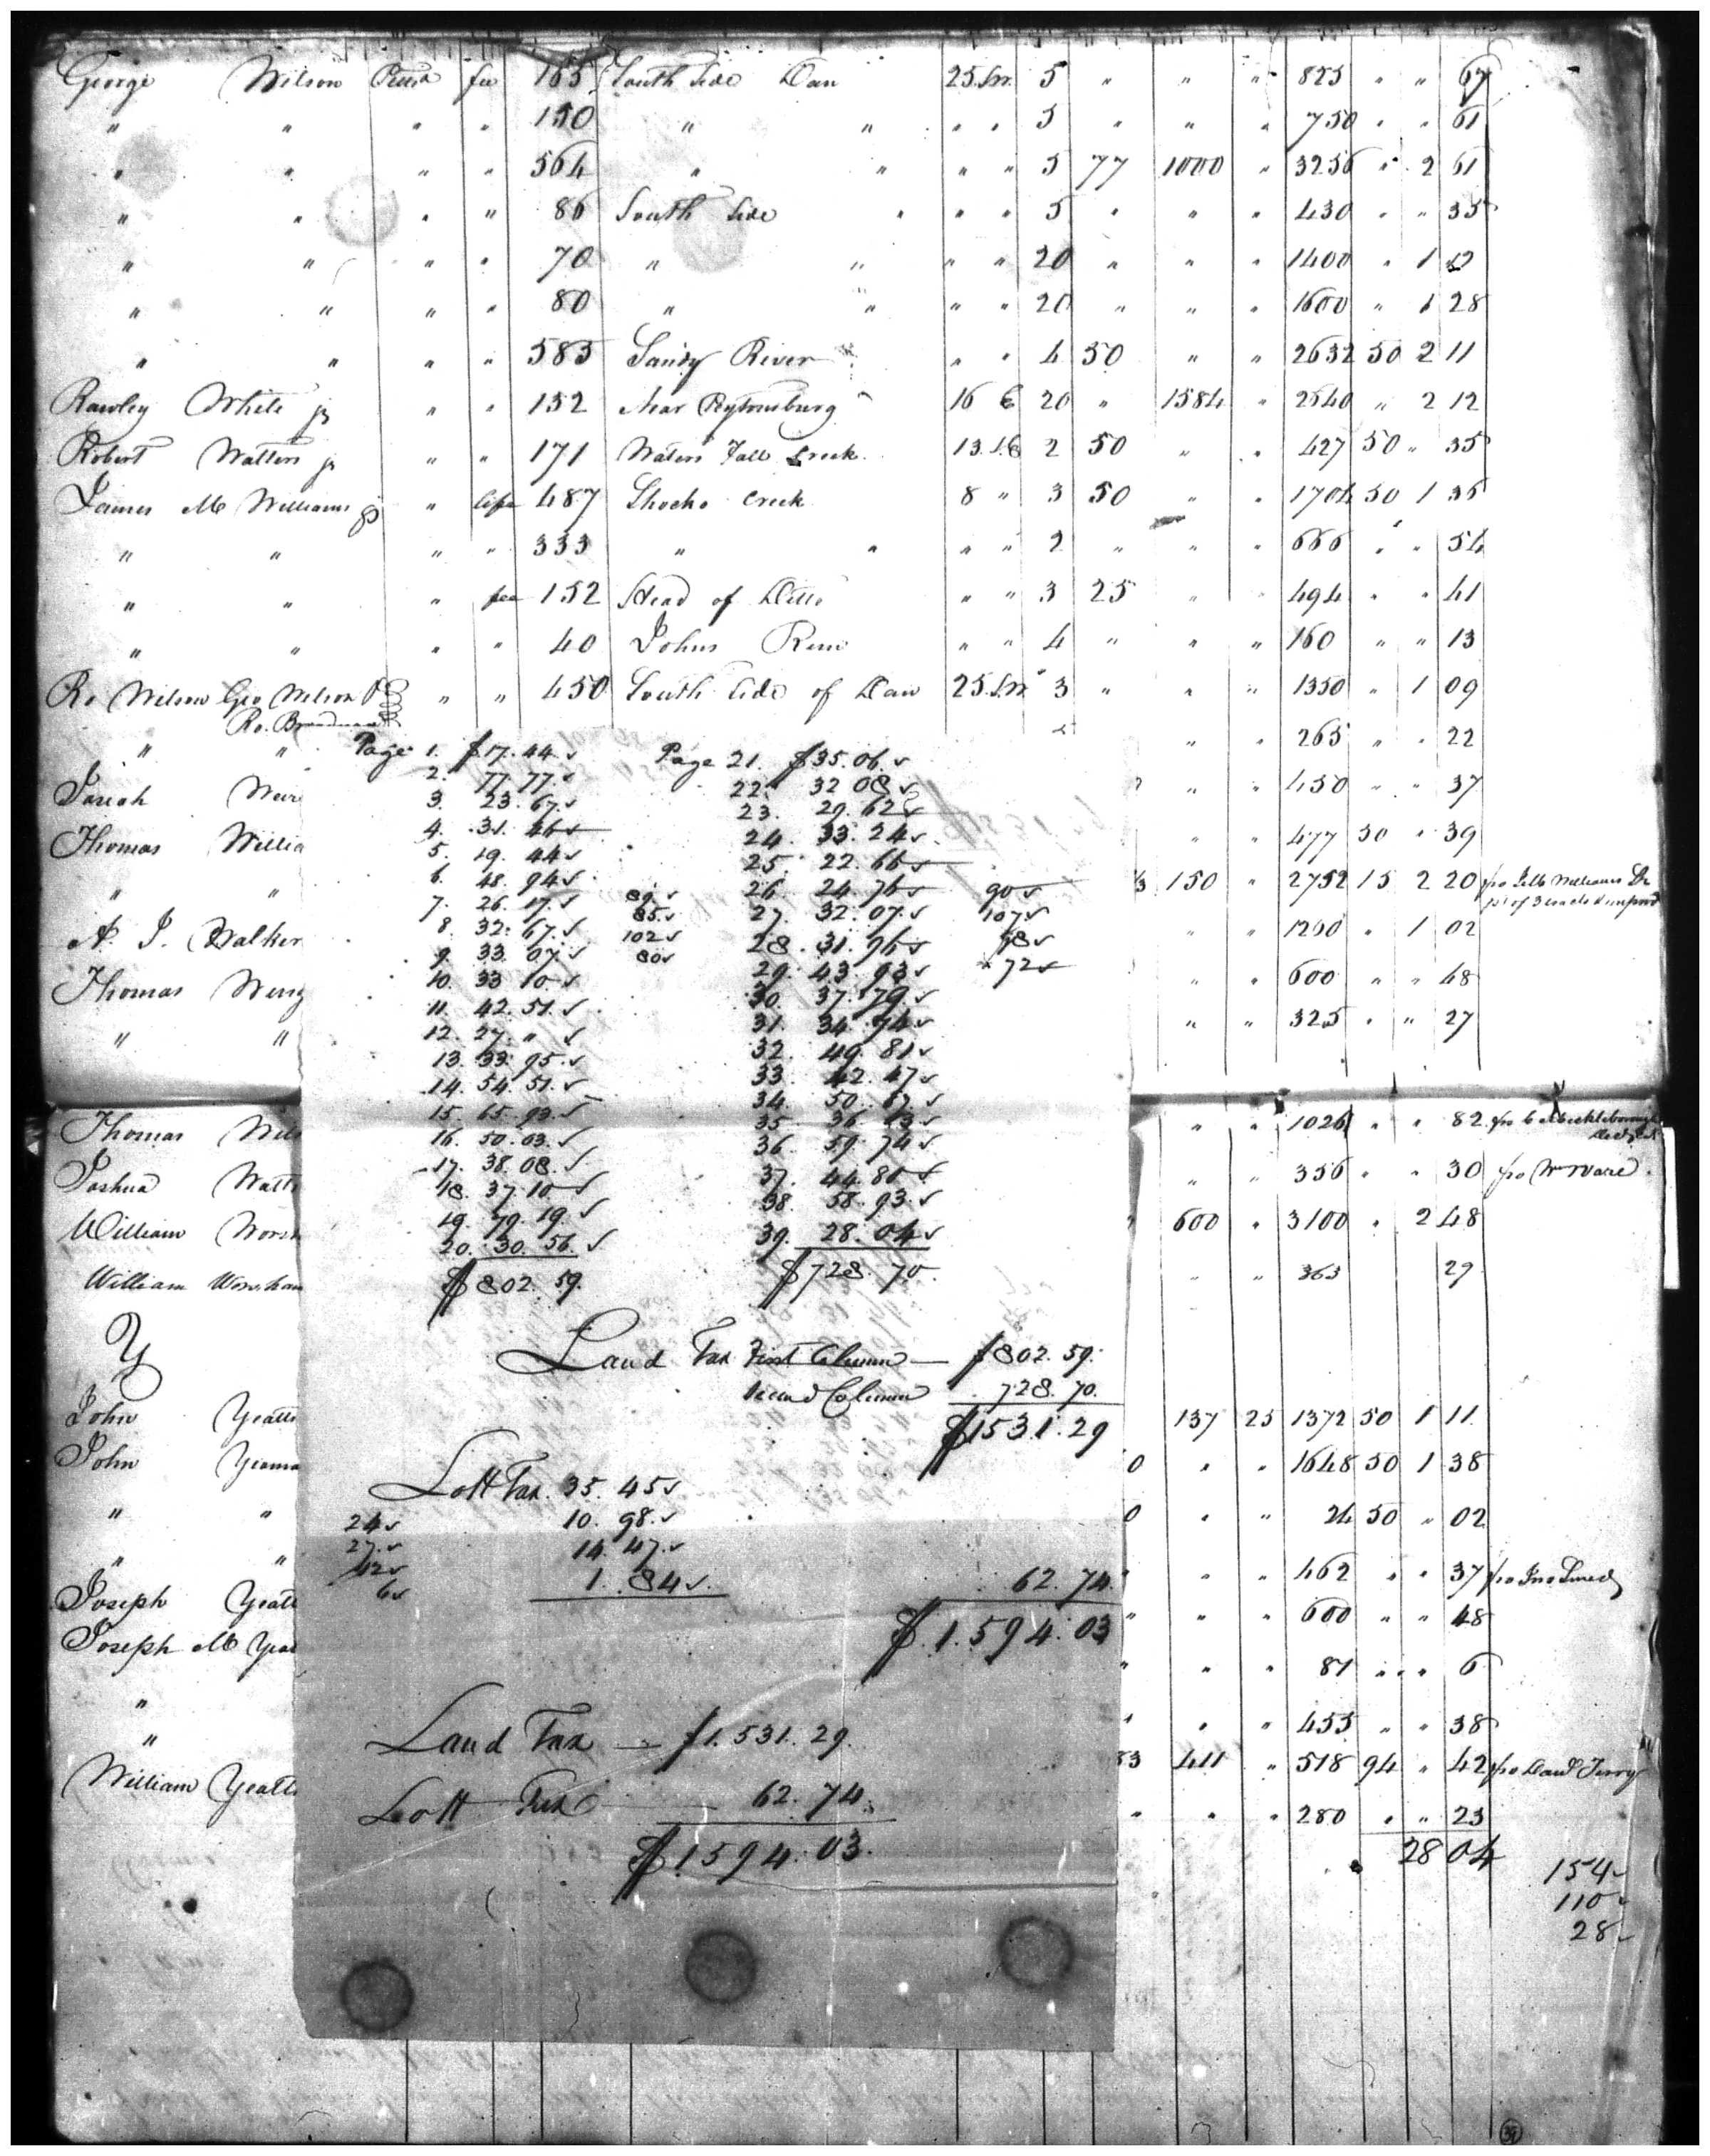 George Wilson Resid fee 165 South Side Dan 25. S.W. 5 " " " 825 " " 67
" " " " 150 " " " " 5 " " " 750 " " 61
" " " " 564 " " " " 5 77 1000 " 3256 " 2 61
" " " " 86 South Side " " " 5 " " " 430 " " 35
" " " " 70 " " " " 20 " " " 1400 " 1 12
" " " " 80 " " " " 20 " " " 1600 " 1 28
" " " " 585 Sandy River " " 4 50 " " 2632 50 2 11
Rawley White jr " " 132 Near Peytonsburg 16 E 20 " 1584 " 2640 " 2 12
Robert Watters jr " " 171 Waters Fall Creek 13. S.E 2 50 " " 427 50 " 35
James M Williams jr " life 487 Shocko Creek 8 " 3 50 " " 1704 50 1 35
" " " " 333 " " " " 2 " " " 666 " " 54
" " " fee 152 Head of Ditto " " 3 25 " " 494 " " 41
" " " " 40 Johns Run " " 4 " " " 160 " " 13
Ro Wilson Geo Wilson " " 450 South Side of Dan 25. S.W. 3 " " " 1350 " 1 09
Ro.
" " " " 265 " " 22
Josiah " " 450 " " 37
Thomas Willia " " 477 50 " 39
" " 3 150 " 2752 15 2 20 fro J M Williams
pt of 3 tracts & improd
A. J. Walker " " 1260 " 1 02
Thomas " " 600 " " 48
" " " " 325 " " 27
Thomas Wils " " 1026 " " 82 fro
Joshua Watts " " 356 " " 30 fro W Ware
William Worsh " 600 " 3100 " 2 48
William Worsham " " 363 29
Y
John Yeatts 137 25 1372 50 1 11
John Yeama 0 " " 1648 50 1 38
" " 0 " " 24 50 " 02
" " " " " 462 " " 37 fro Jno
Joseph Yeatt " " " 600 " " 48
Joseph M Yea " " " 81 " " 6
"
" " " " 455 " " 38
William Yeatts 83 411 " 518 94 " 42 fro David Terry
" " " 280 " " 23
28 04
154
110
28
Page 1. $17. 44. Page 21. $35. 06.
2. 77. 77. 22. 32 08
3. 23. 67. 23. 29. 62
4. 31. 46 24. 33. 24
5. 19. 44 25. 22. 66
6. 48. 94 26. 24. 76 90
7. 26. 17. 89. 27. 32. 07. 107
8. 32. 67. 85. 28. 31. 96 98
9. 33. 07. 102 29. 43. 93 72
10. 33 10 80 30. 37. 79.
11. 42. 51. 31. 34. 74
12. 27. " 32. 49. 81
13. 33. 95. 33. 42. 47
14. 54. 51. 34. 50. 67
15. 65. 93. 35. 36 23
16. 50. 03. 36. 59. 74
17. 38. 08. 37. 44. 80
18. 37. 10 38. 58. 93.
19. 79. 19. 39. 28. 04
20. 30. 56. $728. 70.
$802. 59.
Land Tax First Column — $802. 59.
Second Column 728. 70.
$1531. 29
Lott Tax. 35. 45
24 10. 98.
27. 14. 47.
42 1. 84
6 62. 74.
$1.594. 03
Land Tax — $1.531. 29.
Lott Tax — 62. 74.
$1594. 03.
39